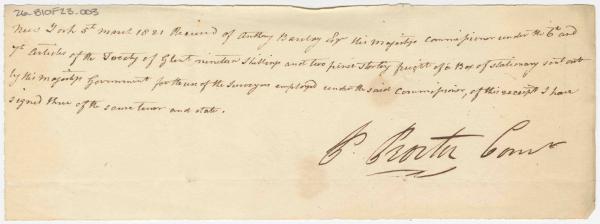 26-B10F23-003
New York 5th March 1821 Received of Anthony Barclay Esqr his Majestys Commissioner under the 6th and
7th Articles of the Treaty of Ghent nineteen Shillings and two pence Sterling freight of a Box of stationary sent out
by his majestys Government for the use of the Surveyors employed under the said Commission, of this receipt I have
signed three of the same tenor and date.
P. Porter Comr